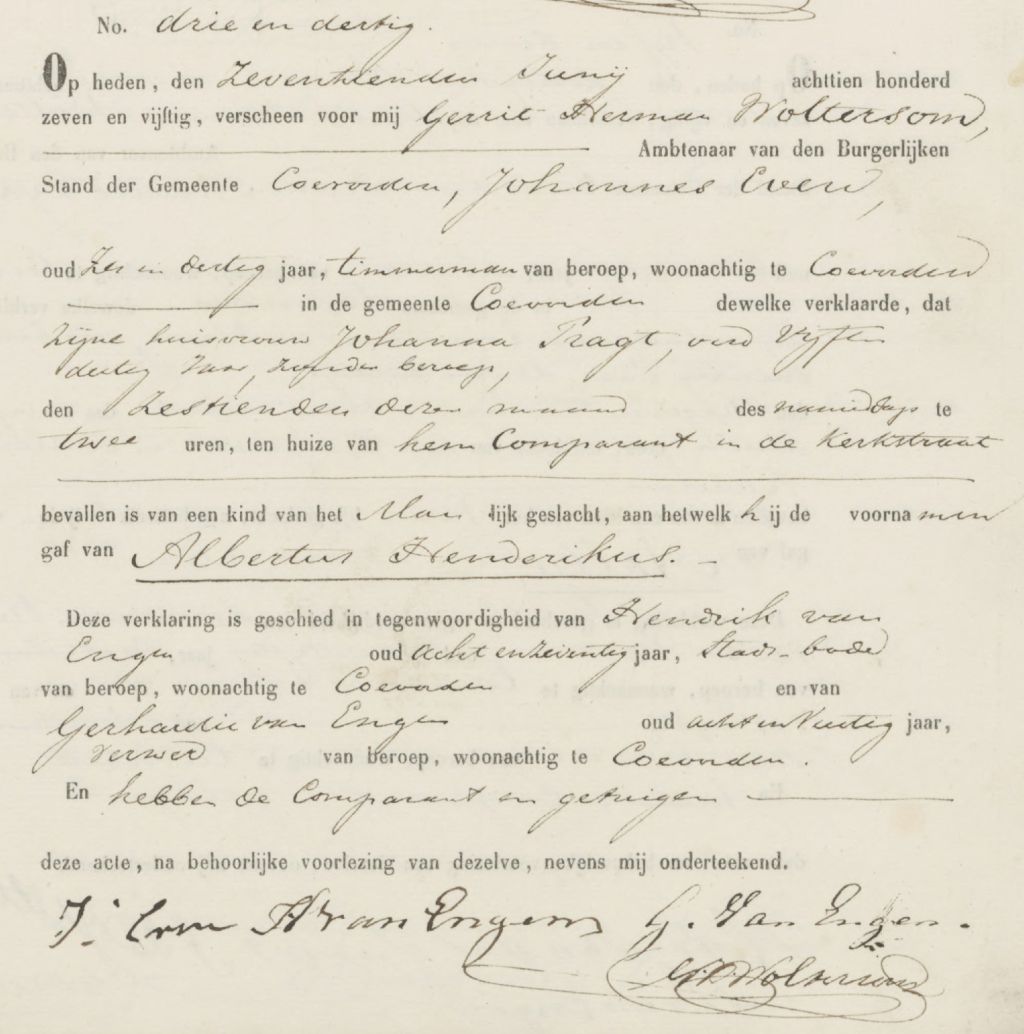 No. drie en dertig.
Op heden, den Zeventienden Junij achttien honderd
zeven en vijftig, verscheen voor mij Gerrit Herman Woltersom,
Ambtenaar van den Burgerlijken
Stand der Gemeente Coevorden, Johannes Even,
oud Zes en dertig jaar, timmerman van beroep, woonachtig te Coevorden
in de gemeente Coevorden dewelke verklaarde, dat
zijne huisvrouw Johanna Tragt, oud Vijf en
dertig Jaar, Zonder beroep,
den Zestienden dezer maand des namiddags te
twee uren, ten huize van hem Comparant in de Kerkstraat
bevallen is van een kind van het Man lijk geslacht, aan hetwelk h ij de voorna men
gaf van Albertus Henderikus. -
Deze verklaring is geschied in tegenwoordigheid van Hendrik van
Engen oud acht en zeventig jaar, Stads-bode
van beroep, woonachtig te Coevorden en van
Gerhardie van Engen oud acht en Veertig jaar,
Verwer van beroep, woonachtig te Coevorden.
En hebben de Comparant en getuigen
deze acte, na behoorlijke voorlezing van dezelve, nevens mij onderteekend.
J. Even H van Engen G. Van Engen.
GH Woltersom